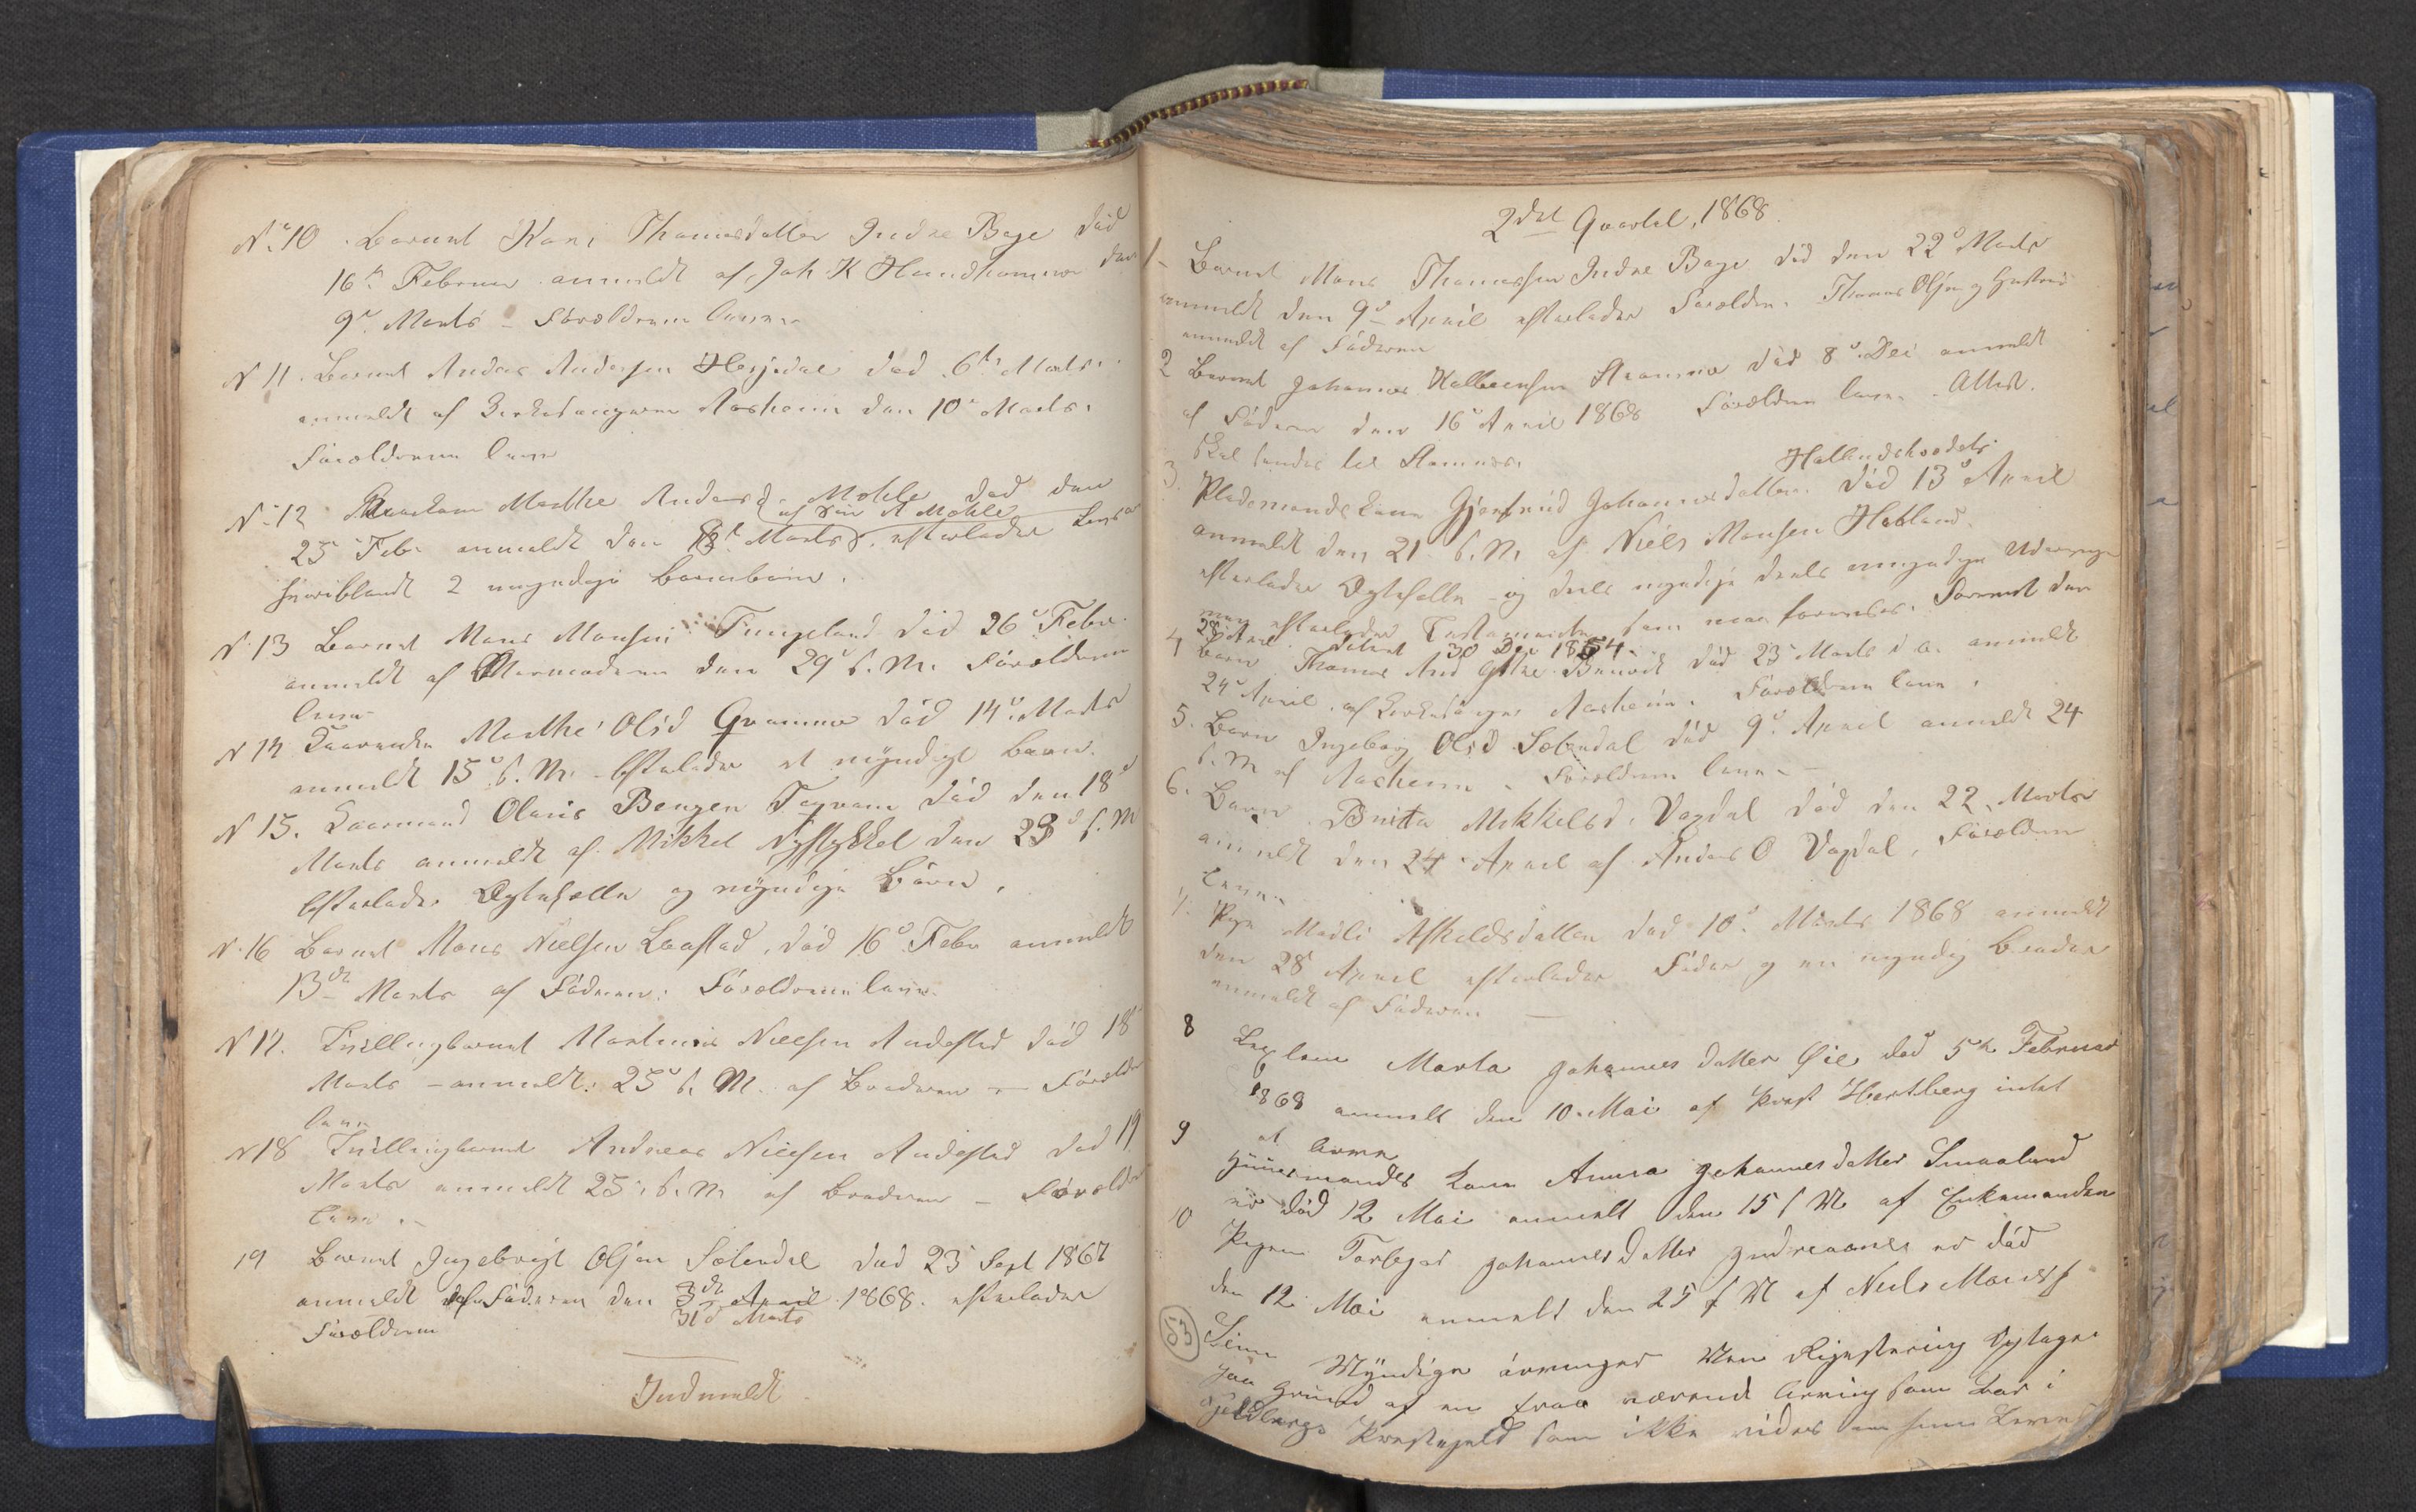 N: 10 Barnet Kari Thomasdatter Indre Bage død
16de Februar anmeldt af Joh K Hundhammer den
9de Marts - Forældrene leve
N 11. Barnet Anders Andersen Hesjedal død 6te Marts
anmeldt af Kirkesangeren Aasheim den 10de Marts.
Forældrene leve
N: 12 Marthe Andersd. Møhle død den
af Søn A Møhle
25 Febr anmeldt den Marts efterlader
hvoriblandt 2 umyndige Børnebørn.
N. 13 Barnet Mons Monsen Tungeland død 26de Febr.
anmeldt af den 29de s. M. Forældrene
leve
N 14 Kaarenke Marthe Olsd Qvamme død 14de Marts
anmeldt 15de s. M. Efterlader et myndigt Barn.
N 15. Kaarmand Olavis Bengen Teqvam død den 18de
Marts anmeldt af Mikkel Nystykket den 28de s. M
Efterlader Ægtefælle og myndige Børn.
N. 16 Barnet Mons Nielsen Laastad, død 16de Febr anmeldt
13de Marts af Faderen: Forældrene leve.
N 17. Tvillingbarnet Martinus Nielsen Audestad død 18
Marts - anmeldt: 25de s. M. af Broderen - Forældre
leve
N 18 Tvillingbarnet Andreas Nielsen Audestad død 19
Marts anmeldt 25. s. M. af Broderen - Forældre
leve.
19 Barnet Ingebrigt Olsen Sælendal død 23 Sept 1867
anmeldt af Faderen den 3de April 1868. efterlader
31te Marts
Forældrene
Indmeldt
2det Qvartal, 1868.
1 Barnet Mons Thomassen Indre Bage død den 22de Marts
anmeldt den 9de April efterlader Forældre. Thomas Olsen og
anmeldt af Faderen
2 Barnet Johannes Halvorsen Stamnes død 8de Dec anmeldt
af Faderen den 16de April 1868 Forældrene leve. Attest.
skal sendes til Stamnes.
Hallandskvodals
3. Pladsmandskone Gjertrud Johannesdatter død 13de April
anmeldt den 21 s. M. af Niels Monsen Halland.
efterlader Ægtefælle og dels myndige dels umyndige Udarvinge
efterlader Testamente som maa forevises. Forevist den
28 April. dateret 30 Dec 1854.
4 Barn Thomas And Bruvik død 23 Marts d. A. anmeldt
24de April. af Kirkesanger Aasheim. Forældrene leve.
5. Barn Ingeborg Olsd Sælendal død 9de April anmeldt 24
s. M af Aasheim. Forældrene leve.
6. Barn Britta Mikkelsd. Vagdal død den 22. Marts
anmeldt den 24 April af Anders O Vagdal, Forældrene
leve.
7. Pige Madli Askeldsdatter død 10de Marts 1868 anmeldt
den 28 April efterlader Fader og en myndig Broder
anmeldt af Faderen
8 Marta Johannesdatter Øie død 5te Februar
1868 anmelt den 10. Mai af Prest Hertberg intet
at arve
9 Huusmands Kone Anna Johannesdatter Smaaland
er død 12 Mai anmelt den 15 f M af Enkemanden
10 Pigen Torbjør Johannesdatter er død
den 12 Mai anmelt den 25 f M af Niels Mons
53
Myndige arvinger Men Registering
paa Grund af en fraværende Arving som Bor i
Prestegjeld som ikke vides om